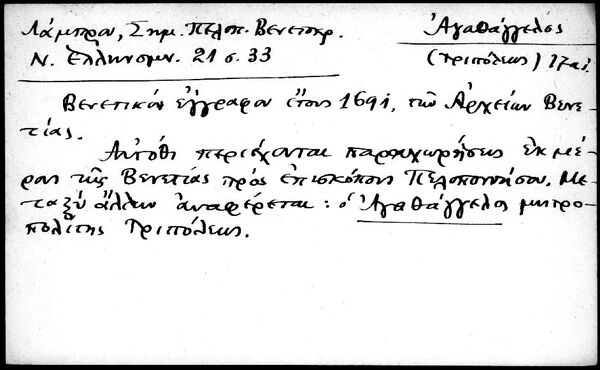 Λάμπρου, Σημ. Πελοπ. Βενετοκρ. Ἀγαθάγγελος
Ν. Ἑλληνομν. 21 σ. 33 (Τριπόλεως) 17 αἰ.
Βενετικόν ἔγγραφον ἔτους 1691, τῶν Ἀρχείων Βενε-
τίας.
Αὐτόθι περιέχονται παραχωρήσεις ἐκ μέ-
ρους τῆς Βενετίας πρός ἐπισκόπους Πελοποννήσου. Με-
ταξύ ἄλλων ἀναφέρεται: ὁ Ἀγαθάγγελος μητρο-
πολίτης Τριπόλεως.